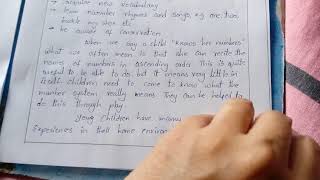 → acquire new vocabulary
→ learn number rhymes and songs, e.g. one, two,
buckle my shoe etc.
→ be aware of conservation
When we say a child "knows her numbers"
what we often mean is that she can recite the
names of numbers in ascending order. This is quite
useful to be able to do, but it means very little in
itself. Children need to come to know what the
number system really means. They can be helped to
do this through play
Young children have many
experiences in their home environ